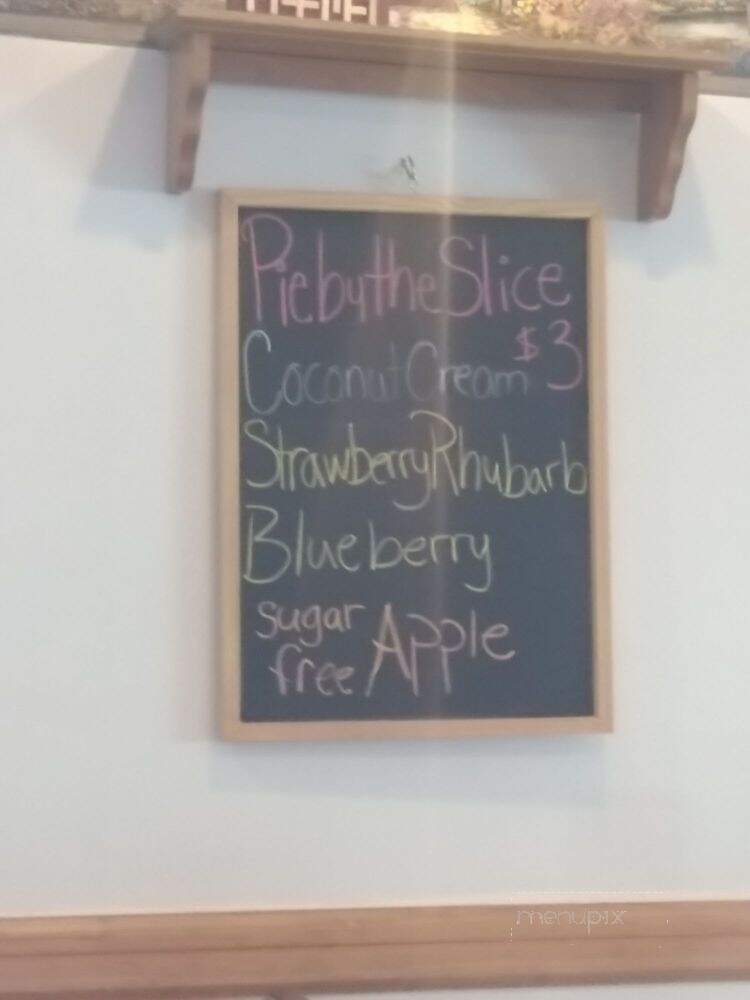 Pie by the Slice
$3
Coconut Cream
Strawberry Rhubarb
Blueberry
sugar
free Apple
menupix